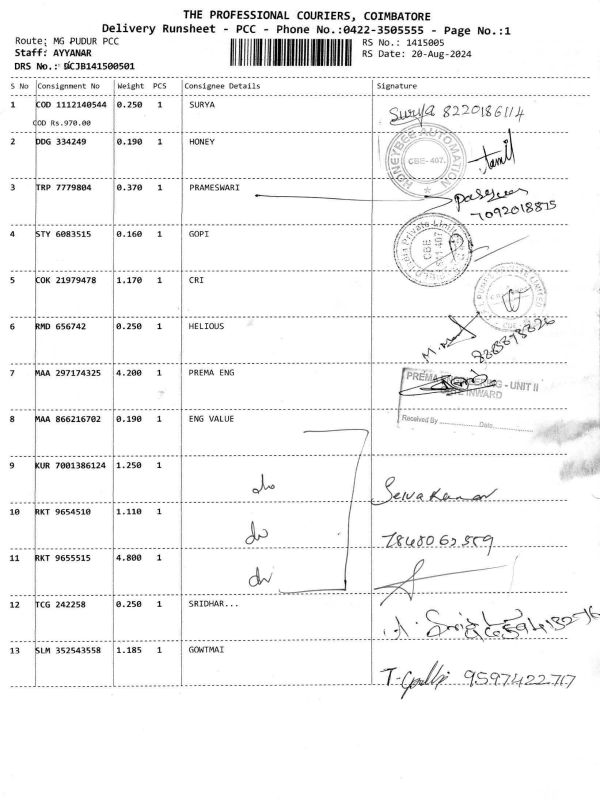 THE PROFESSIONAL COURIERS, COIMBATORE
Delivery Runsheet - PCC - Phone No.:0422-3505555 - Page No.:1
Route: MG PUDUR PCC
RS No.: 1415005
Staff: AYYANAR
RS Date: 20-Aug-2024
DRS No.: BCJB141500501
S No Consignment No Weight PCS Consignee Details Signature
1 COD 1112140544 0.250 1 SURYA Surya 8220186114
COD Rs.970.00
2 DDG 334249 0.190 1 HONEY tamil
HONEYBEE AUTOMATION
CBE-407.
3 TRP 7779804 0.370 1 PRAMESWARI
7092018875
4 STY 6083515 0.160 1 GOPI
Private Limited
CBE
641 407
5 COK 21979478 1.170 1 CRI
6 RMD 656742 0.250 1 HELIOUS
7 MAA 297174325 4.200 1 PREMA ENG
PREMA - UNIT II
INWARD
Received By Date
8 MAA 866216702 0.190 1 ENG VALUE
9 KUR 7001386124 1.250 1 do Selvakumar
10 RKT 9654510 1.110 1 do 7848062559
11 RKT 9655515 4.800 1 do
12 TCG 242258 0.250 1 SRIDHAR...
13 SLM 352543558 1.185 1 GOWTMAI 9597422717